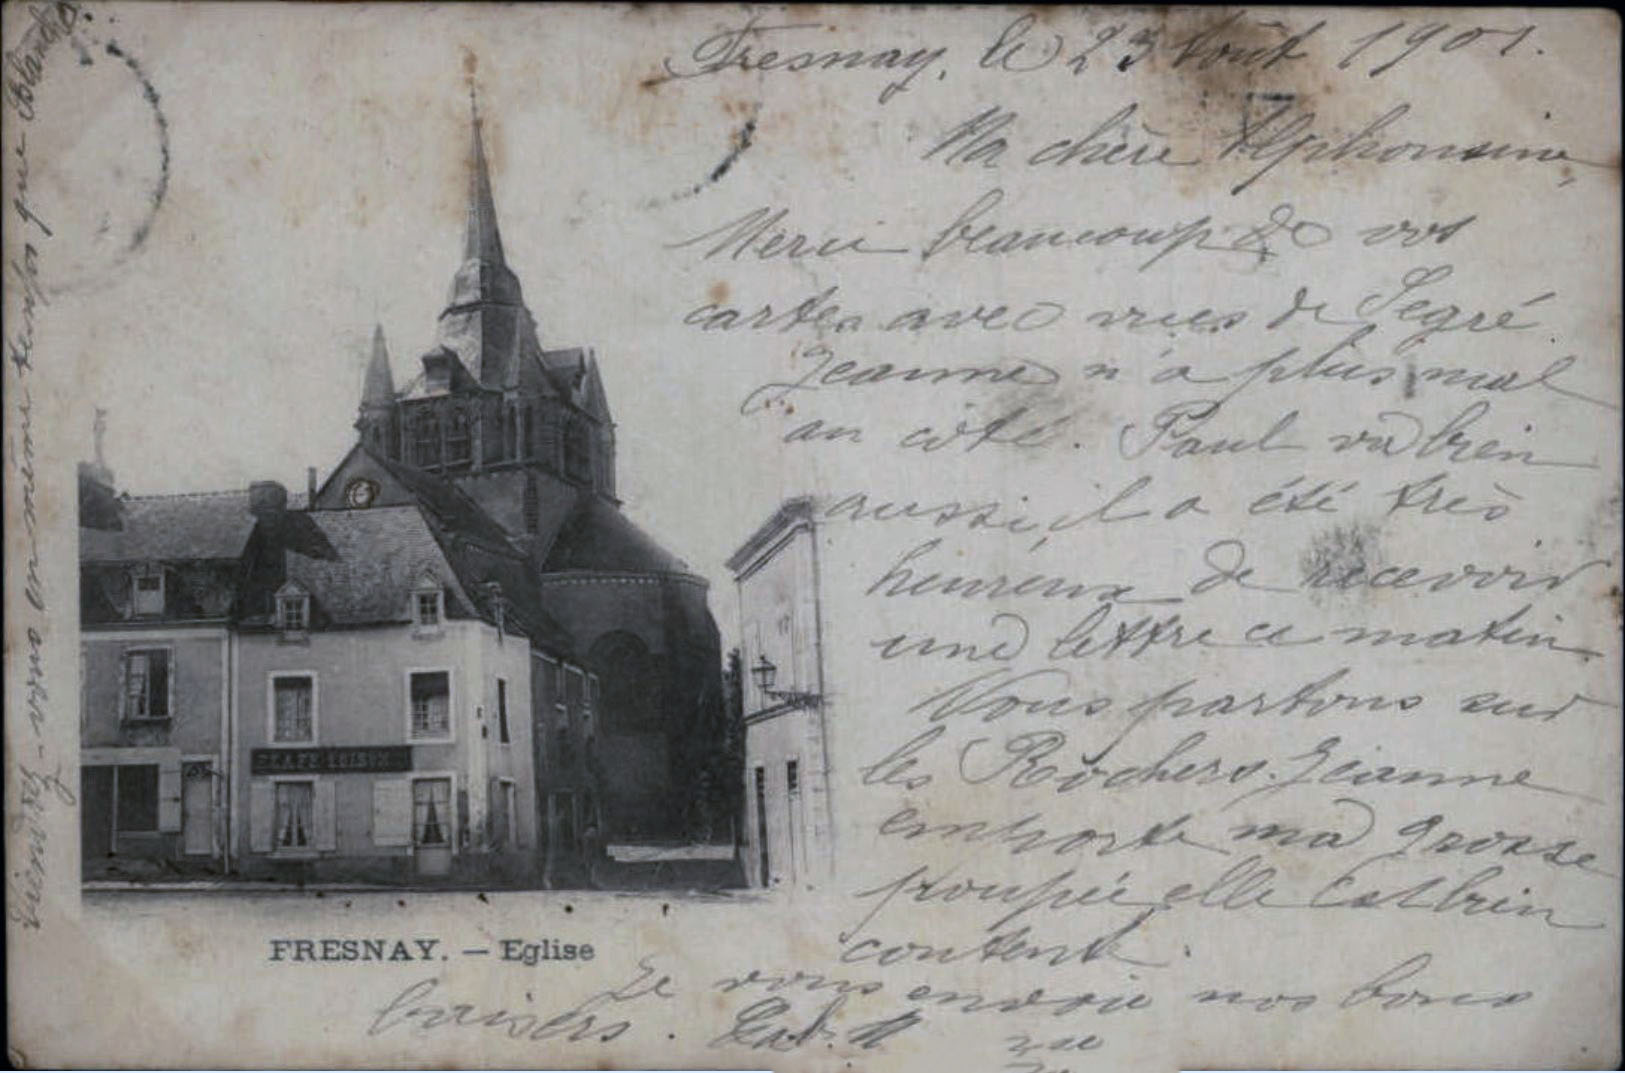 Fresnay, le 23 Août 1901.
Ma chère Alphonsine,
Merci beaucoup de vos
cartes avec vues de Segré
Jeanne n'a plus mal
au côté. Paul va bien
aussi, il a été très
heureux de recevoir
une lettre ce matin.
Nous partons sur
les Rochers. Jeanne
emporte ma grosse
poupée elle est bien
contente.
Je vous envoie nos bons
baisers.
Viendrez-vous en même temps que Blanche.
CAFE LOISON
FRESNAY. — Eglise